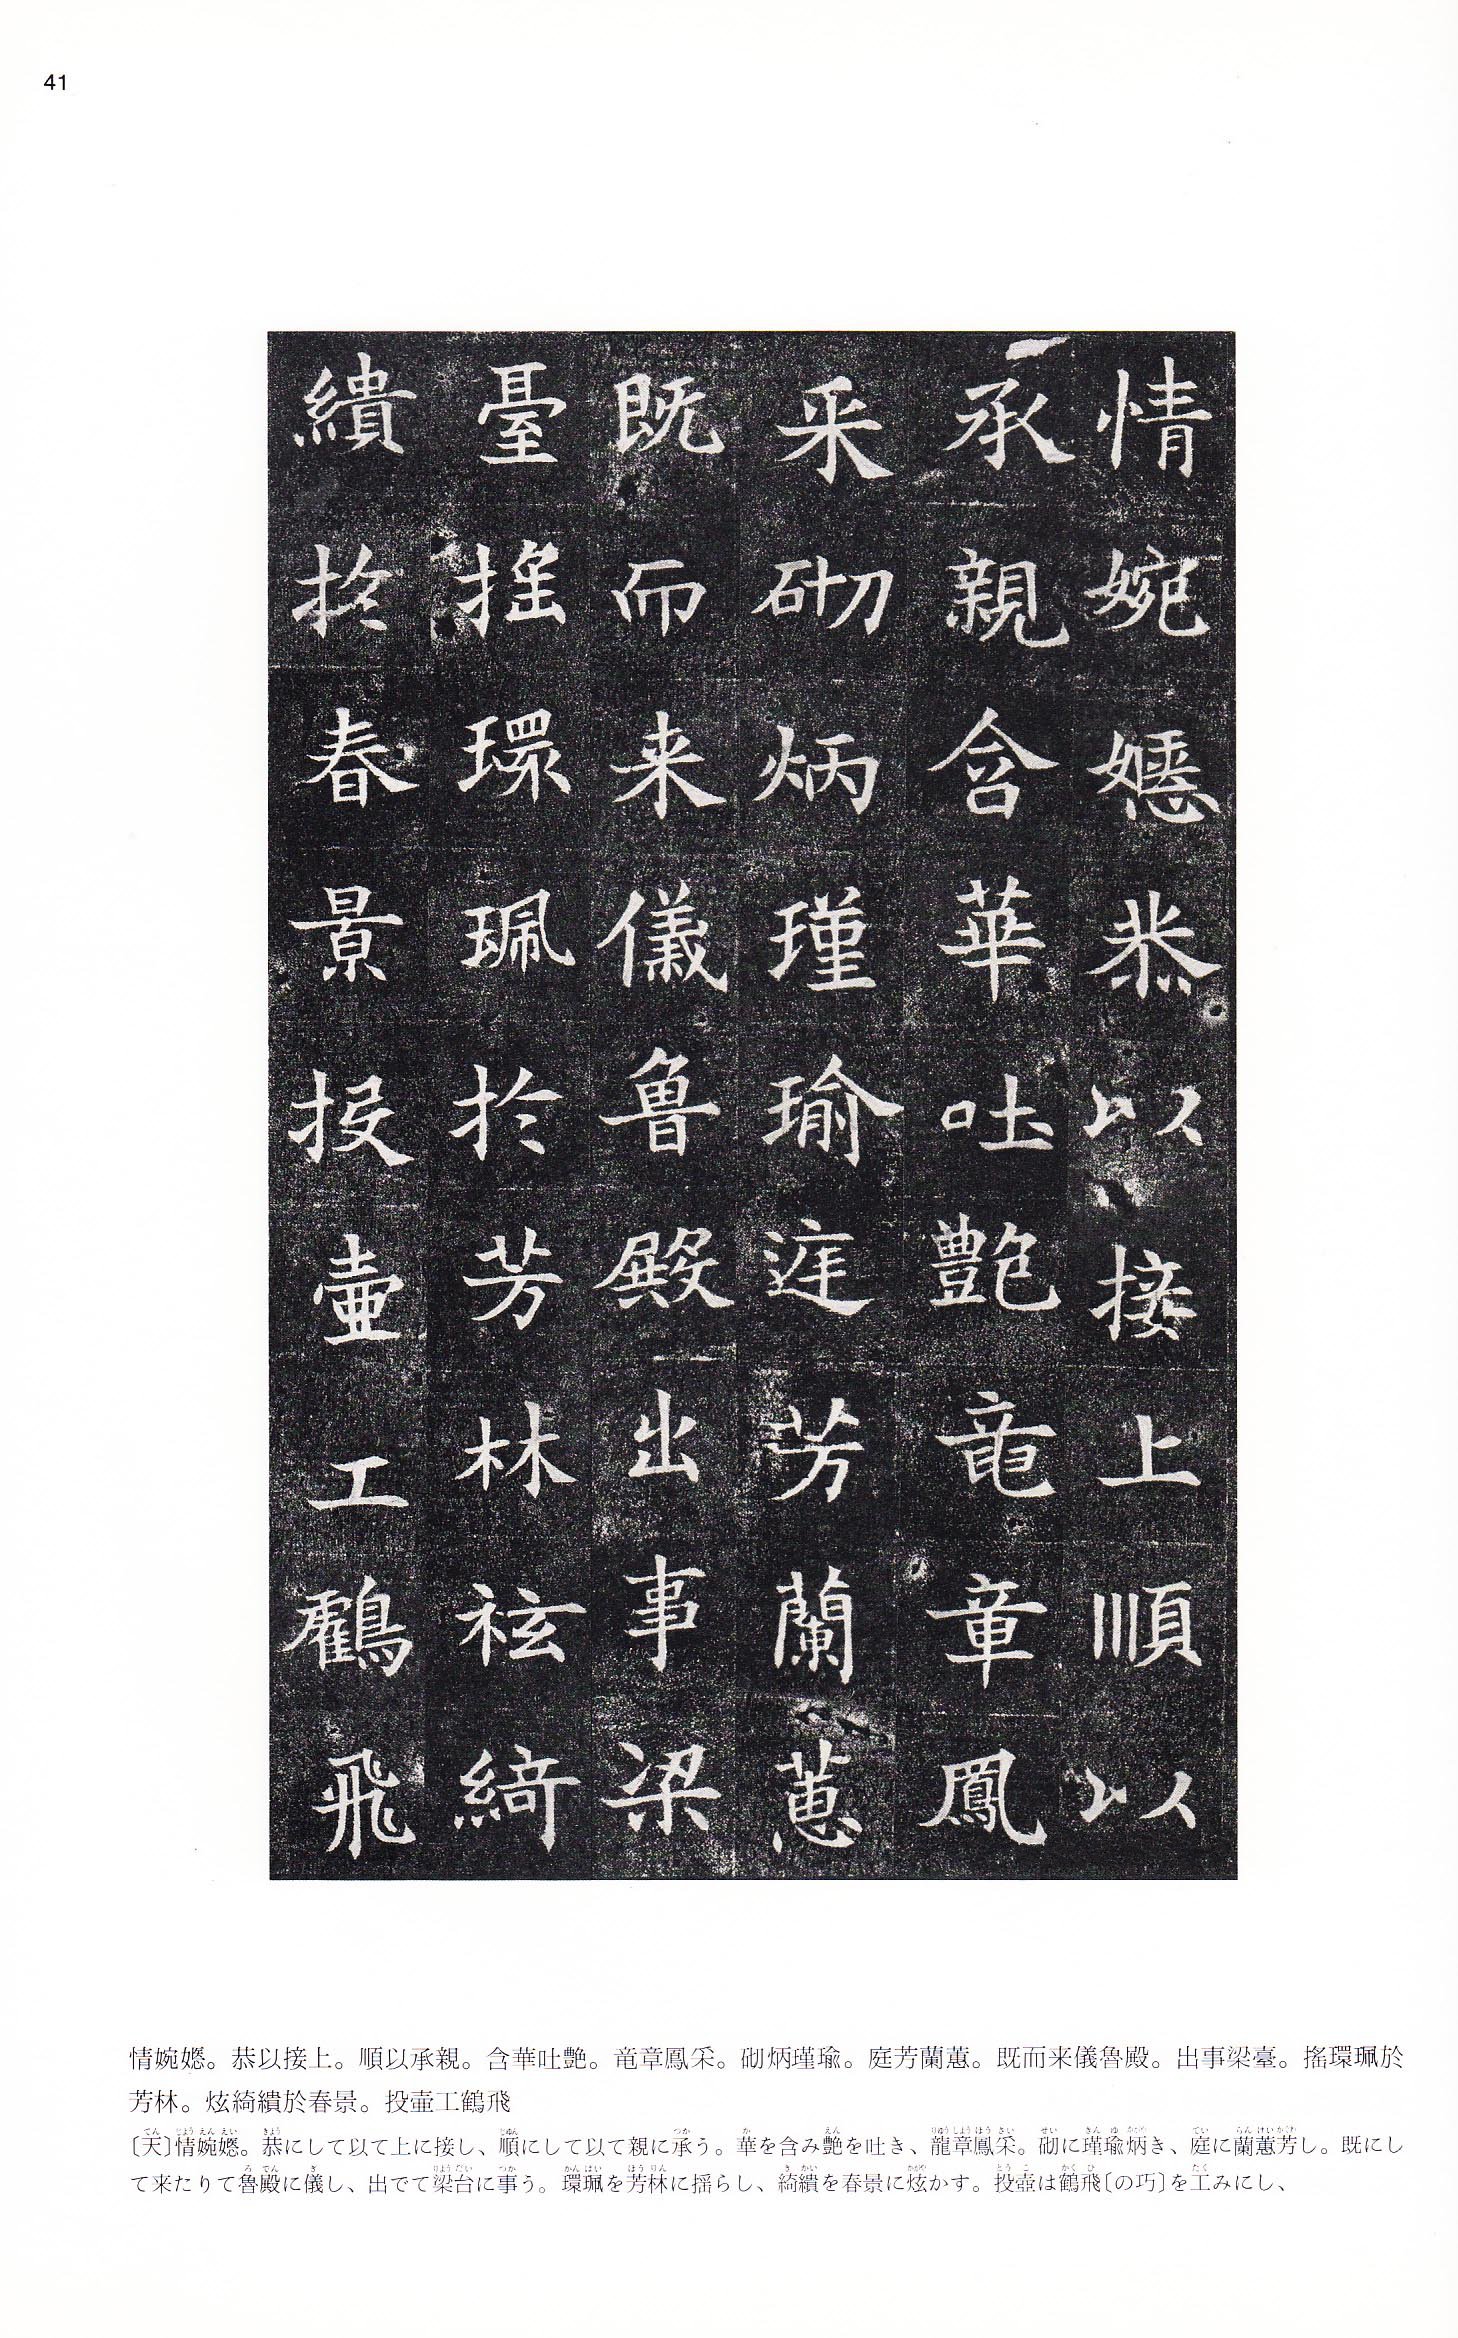 41
情婉嬺恭以接上順以
承親含華吐艶竜章鳳
采砌炳瑾瑜庭芳蘭蕙
既而来儀魯殿出事梁
臺搖環珮於芳林袨綺
繢於春景投壷工鸖飛
情婉嬺。恭以接上。順以承親。含華吐艶。竜章鳳采。砌炳瑾瑜。庭芳蘭蕙。既而来儀魯殿。出事梁臺。搖環珮於
芳林。炫綺繢於春景。投壷工鶴飛
〔天〕情婉嬺。恭にして以て上に接し、順にして以て親に承う。華を含み艶を吐き、龍章鳳采。砌に瑾瑜炳き、庭に蘭蕙芳し。既にし
て来たりて魯殿に儀し、出でて梁台に事う。環珮を芳林に揺らし、綺繢を春景に炫かす。投壺は鶴飛〔の巧〕を工みにし、